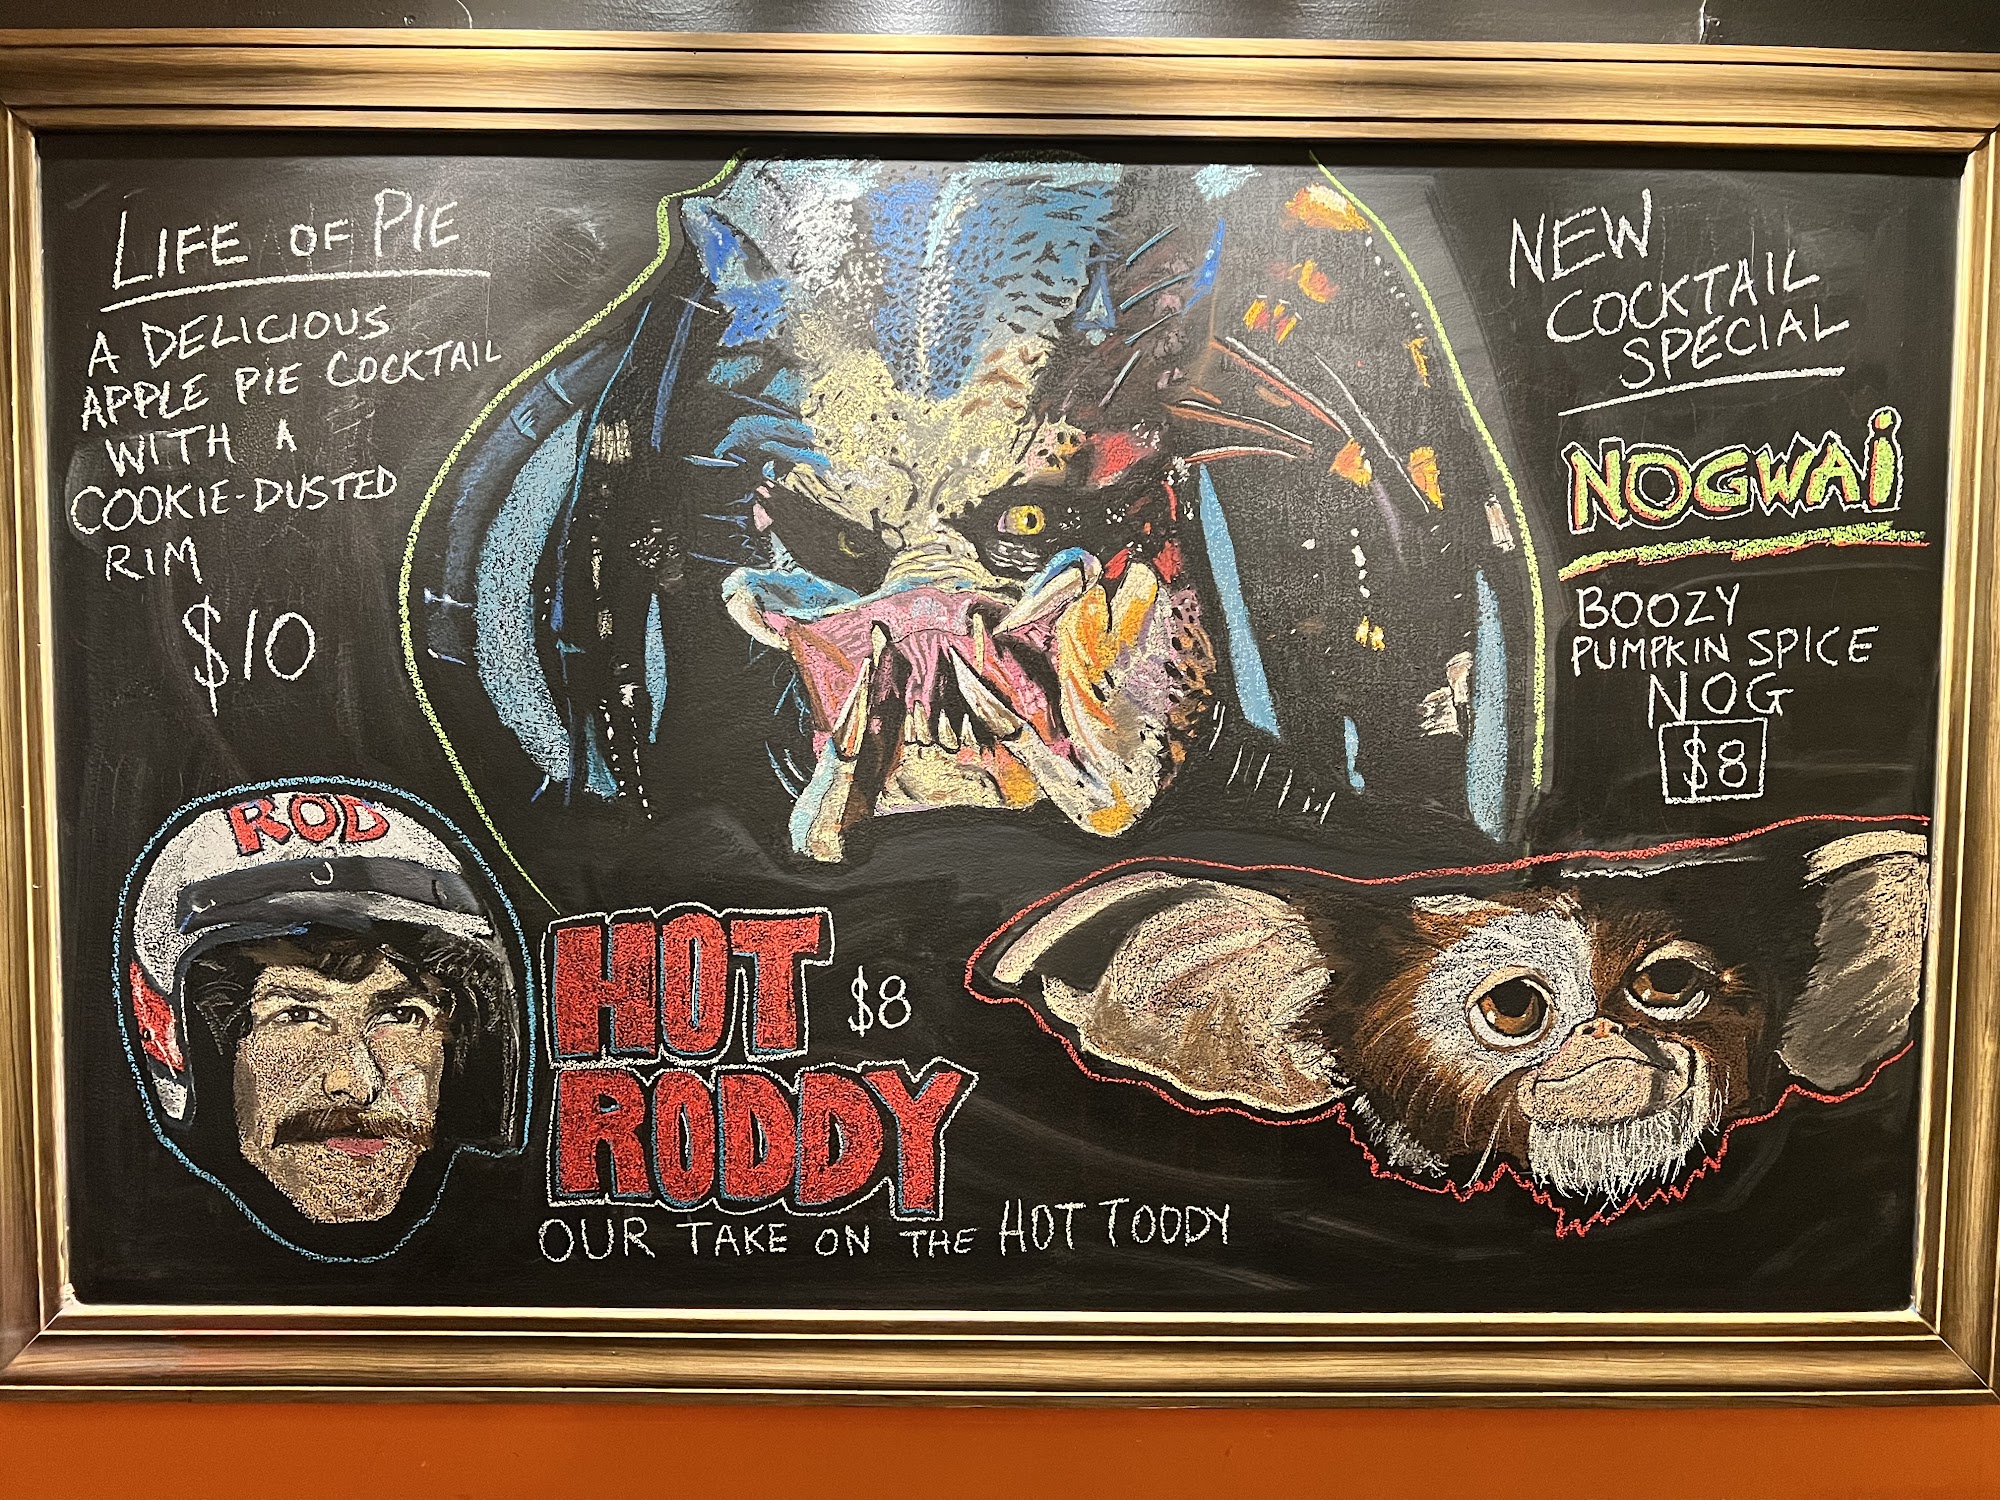 LIFE OF PIE
A DELICIOUS
APPLE PIE COCKTAIL
WITH A
COOKIE-DUSTED
RIM
$10
NEW
COCKTAIL
SPECIAL
NOGWAi
BOOZY
PUMPKIN SPICE
NOG
$8
ROD
HOT
$8
RODDY
OUR TAKE ON THE HOT TODDY